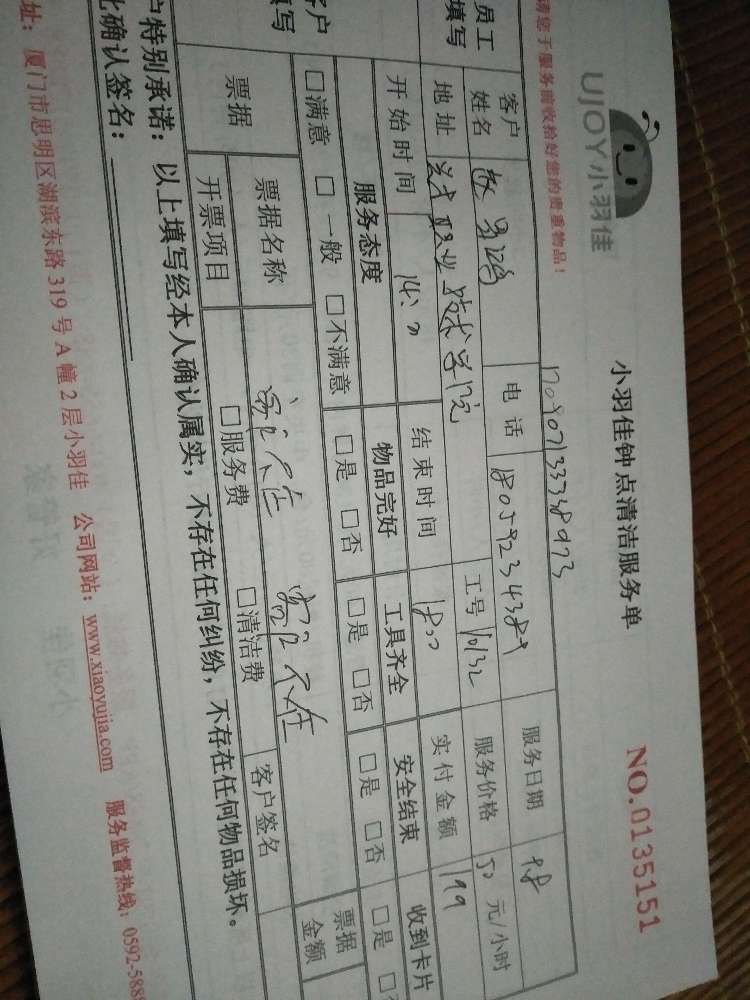 UJOY小羽佳
小羽佳钟点清洁服务单
NO.0135151
请您于服务前收拾好您的贵重物品！
员工填写
客户姓名
电话 18059234389
服务日期 9.8
地址 职业技术学院
工号 10132
服务价格 50 元/小时
开始时间 14:00
结束时间 18:00
实付金额 199
客户填写
服务态度 物品完好 工具齐全 安全结束 收到卡片
□满意 □一般 □不满意 □是 □否 □是 □否 □是 □否 □是
票据 票据名称 客户签名 票据金额
开票项目 □服务费 □清洁费
户特别承诺：以上填写经本人确认属实，不存在任何纠纷，不存在任何物品损坏。
此确认签名：
址：厦门市思明区湖滨东路 319 号 A 幢 2 层小羽佳 公司网站：www.xiaoyujia.com 服务监督热线：0592-5888